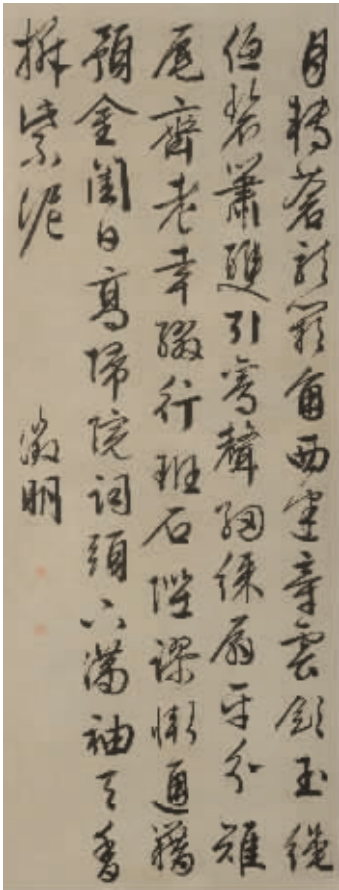 月轉蒼龍闕角西建章雲斂玉繩
低碧簫雙引鸞聲細綵扇平分雉
尾齊老幸綴行班石陛謬慚通籍
預金閨日高歸院詞頭下滿袖天香
拆紫泥
徵明